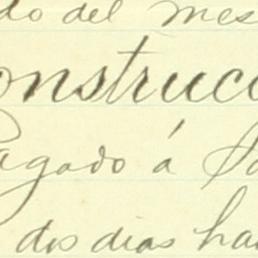 do del mes
onstrucc
Pagado á Sa
dos dias ha